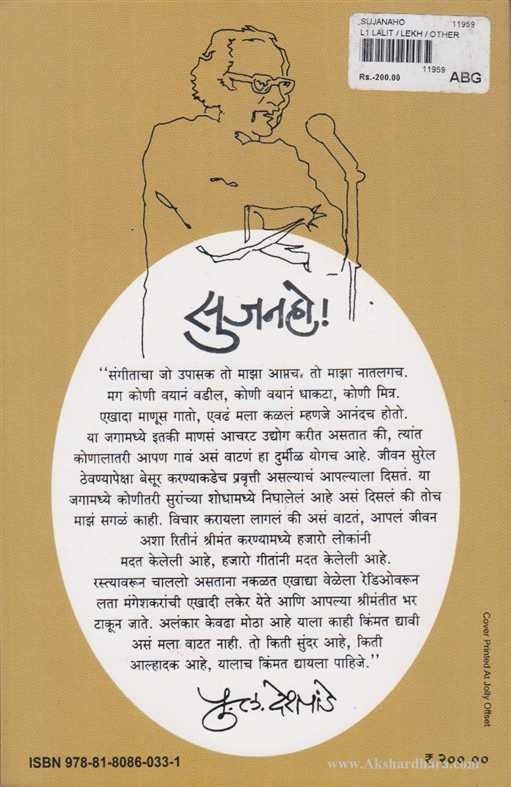 SUJANAHO 11959
L1 LALIT / LEKH / OTHER
11959
Rs.-200.00 ABG
सुजनहो!
“संगीताचा जो उपासक तो माझा आप्तच. तो माझा नातलगच.
मग कोणी वयानं वडील, कोणी वयानं धाकटा, कोणी मित्र.
एखादा माणूस गातो, एवढं मला कळलं म्हणजे आनंदच होतो.
या जगामध्ये इतकी माणसं आचरट उद्योग करीत असतात की, त्यांत
कोणालातरी आपण गावं असं वाटणं हा दुर्मीळ योगच आहे. जीवन सुरेल
ठेवण्यापेक्षा बेसूर करण्याकडेच प्रवृत्ती असल्याचं आपल्याला दिसतं. या
जगामध्ये कोणीतरी सुरांच्या शोधामध्ये निघालेलं आहे असं दिसलं की तोच
माझं सगळं काही. विचार करायला लागलं की असं वाटतं, आपलं जीवन
अशा रितीनं श्रीमंत करण्यामध्ये हजारो लोकांनी
मदत केलेली आहे, हजारो गीतांनी मदत केलेली आहे.
रस्त्यावरून चाललो असताना नकळत एखाद्या वेळेला रेडिओवरून
लता मंगेशकरांची एखादी लकेर येते आणि आपल्या श्रीमंतीत भर
टाकून जाते. अलंकार केवढा मोठा आहे याला काही किंमत द्यावी
असं मला वाटत नाही. तो किती सुंदर आहे, किती
आल्हादक आहे, यालाच किंमत द्यायला पाहिजे.”
पु. ल. देशपांडे
Cover Printed At Jolly Offset
ISBN 978-81-8086-033-1
₹ २००.००
www.Akshardhara.com